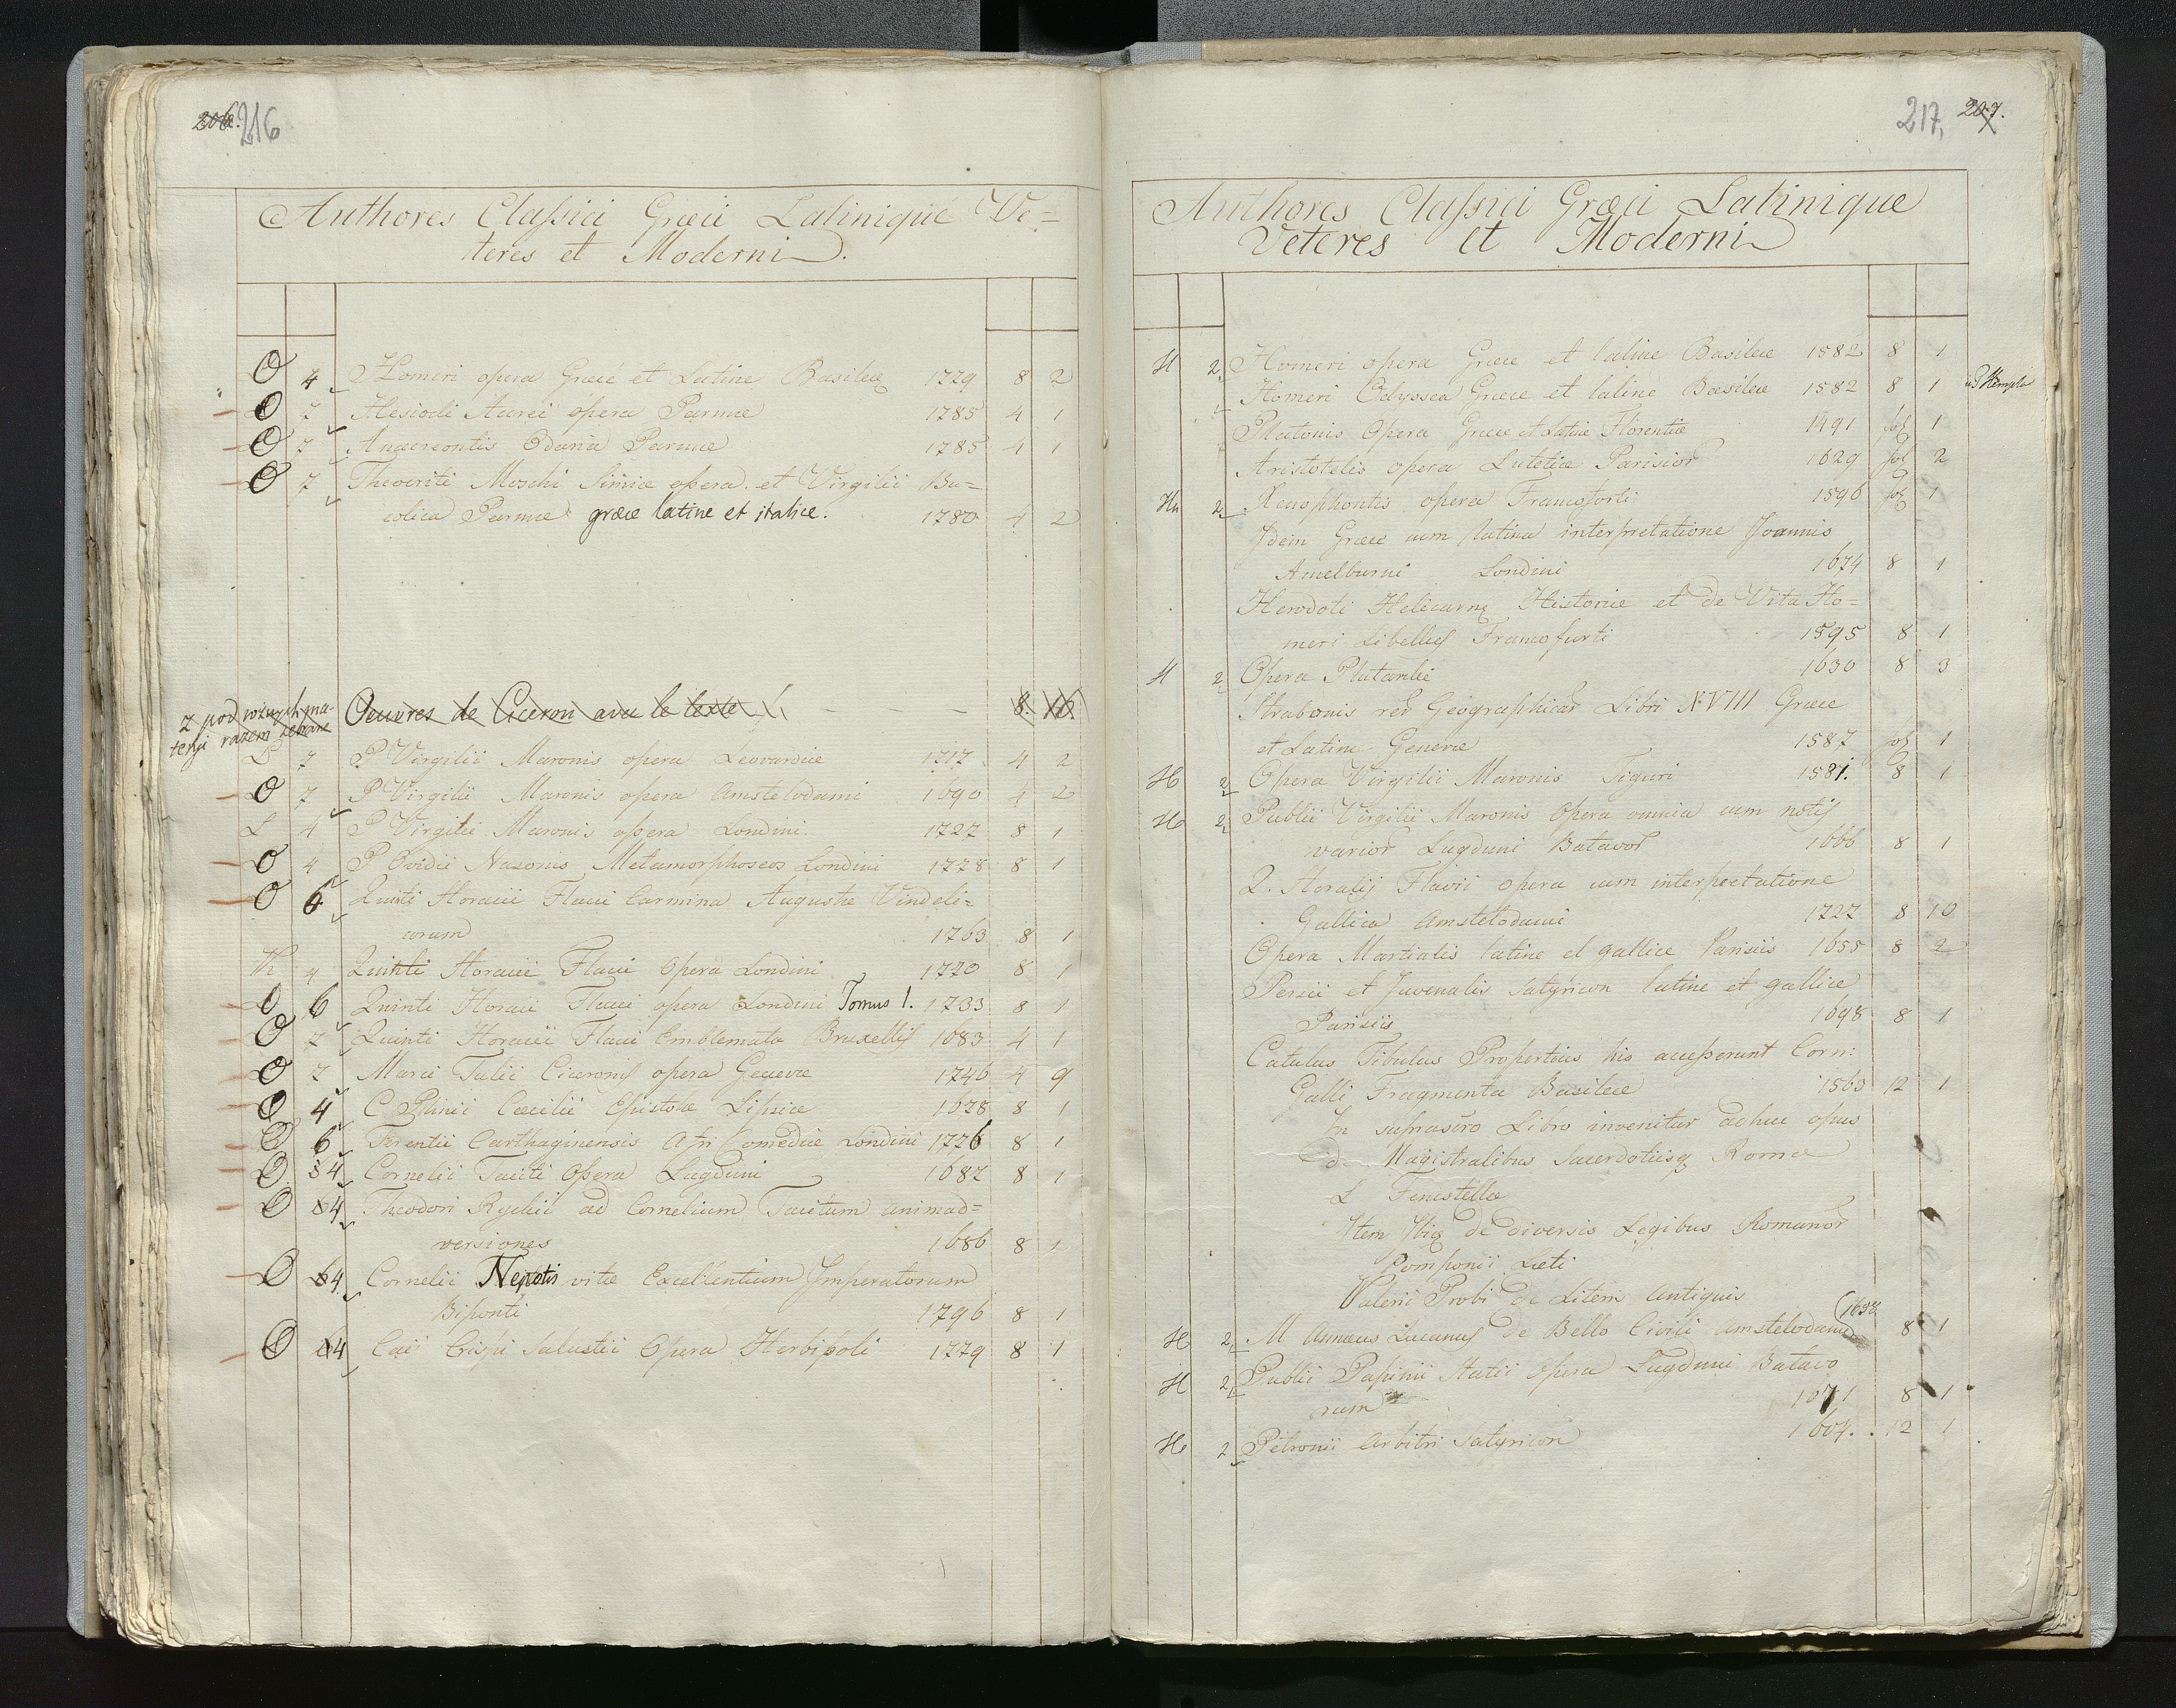 206. 216
Authores Classici Græci Latinique Ve=
teres et Moderni.
O 4 Homeri opera Græcè et Latine Basileæ 1779 8 2
O 7 Hesiodi Ascrei opera Parmæ 1785 4 1
O 7 Anacreontis Odaria Parmæ 1785 4 1
O 7 Theocriti Moschi Simiæ opera et Virgilii Bu=
colica Parmæ græce latine et italice. 1780 4 2
z pod różnych ma-
teryi razem zebrane
Oeuvres de Ciceron avec le texte 8. 10
L 7 P Virgilii Maronis opera Leovardiæ 1717 4 2
O 7 P Virgilii Maronis opera Amstelodami 1690 4 2
L 4 P Virgilii Maronis opera Londini 1727 8 1
O 4 P Ovidii Nasonis Metamorphoseos Londini 1728 8 1
O 6 Quinti Horacii Flacci Carmina Augustæ Vindeli=
corum 1763 8 1
4 Quinti Horacii Flacci Opera Londini 1720 8 1
O 6 Quinti Horacii Flacci opera Londini Tomus 1. 1733 8 1
O 7 Quinti Horacii Flacci Emblemata Bruxellis 1683 4 1
O 7 Marci Tulii Ciceronis opera Genevæ 1746 4 9
O 4 C Plinii Cæcilii Epistolæ Lipsiæ 1628 8 1
O 6 Terentii Carthaginensis Afri Comediæ Londini 1776 8 1
O 4 Cornelii Taciti Opera Lugduni 1687 8 1
O 4 Theodori Ryckii ad Cornelium Tacitum animad=
versiones 1686 8 1
O 4 Cornelii Nepotis vitæ Excellentium Imperatorum
Biponti 1796 8 1
O 4 Caii Crispi Salustii Opera Herbipoli 1779 8 1
217, 207.
Authores Classici Græci Latinique
Veteres et Moderni
H 2 Homeri opera Græce et latine Basileæ 1582 8 1
Homeri Odyssea Græce et latine Basileæ 1582 8 1
Platonis Opera Græce et Latine Florentiæ 1491 fol 1
Aristotelis opera Lutetiæ Parisior 1629 fol 2
H 2 Xenophontis opera Francoforti 1596 fol 1
Idem Græce cum latina interpretatione Joannis
Amelburni Londini 1674 8 1
Herodoti Helicarnę Historiæ et de Vita Ho=
meri Libellus Francofurti 1595 8 1
H 2 Opera Plutarchi 1630 8 3
Strabonis rer Geographicar Libri XVIII Græce
et Latine Genevæ 1587 fol 1
H 2 Opera Virgilii Maronis Tiguri 1581. 8 1
H 2 Publii Virgilii Maronis Opera omnia cum notis
varior Lugduni Batavor 1666 8 1
Q. Horatij Flacii opera cum interpretatione
Gallica Amstelodami 1727 8 10
Opera Martialis latine et gallice Parisiis 1655 8 2
Persii et Juvenalis Satyricon latine et gallice
Parisiis 1698 8 1
Catulus Tibulus Propertius his accesserunt Corn:
Galli Fragmenta Basileæ 1563 12 1
In suprascro Libro invenitur adhuc opus
de Magistralibus Sacerdotiisq Romæ
L Fenestellæ
Item Ibiq de diversis Legibus Romanor
Pomponii Læti
Valerii Probi de Litern Antiquis
H 2 M Annæus Lucanus de Bello Civili Amstelodami 1658 8 1
H 2 Publii Papinii Statii opera Lugduni Batavo
rum 1671 8 1
H 2 Petronii Arbitri Satyricon 1604. 12 1